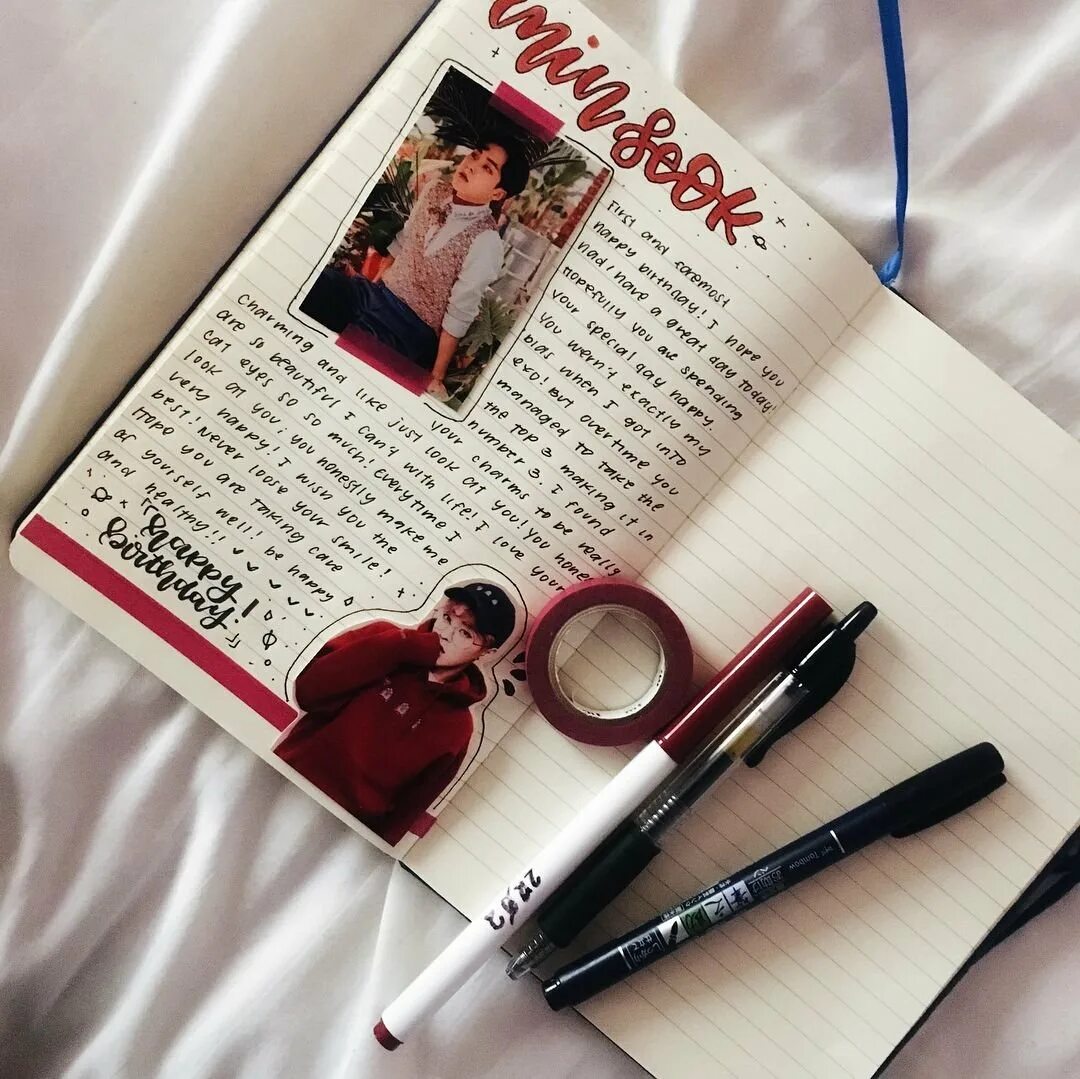 minseok
First and foremost
happy birthday! I hope you
had/have a great day today!
Hopefully you are spending
your special day happy.
You wern't exactly my
bias when I got into
exo! But overtime you
managed to take the
the top 3 making it in
number 3. I found
your charms to be really
Charming and like just look at you! You
are so beautiful I can't with life! I love your
cat eyes so so much! Everytime I
look at you, you honestly make me
very happy! I wish you the
best! Never loose your smile!
Hope you are taking care
of yourself well! be happy
and healthy!!
Happy
birthday!
by Tombow